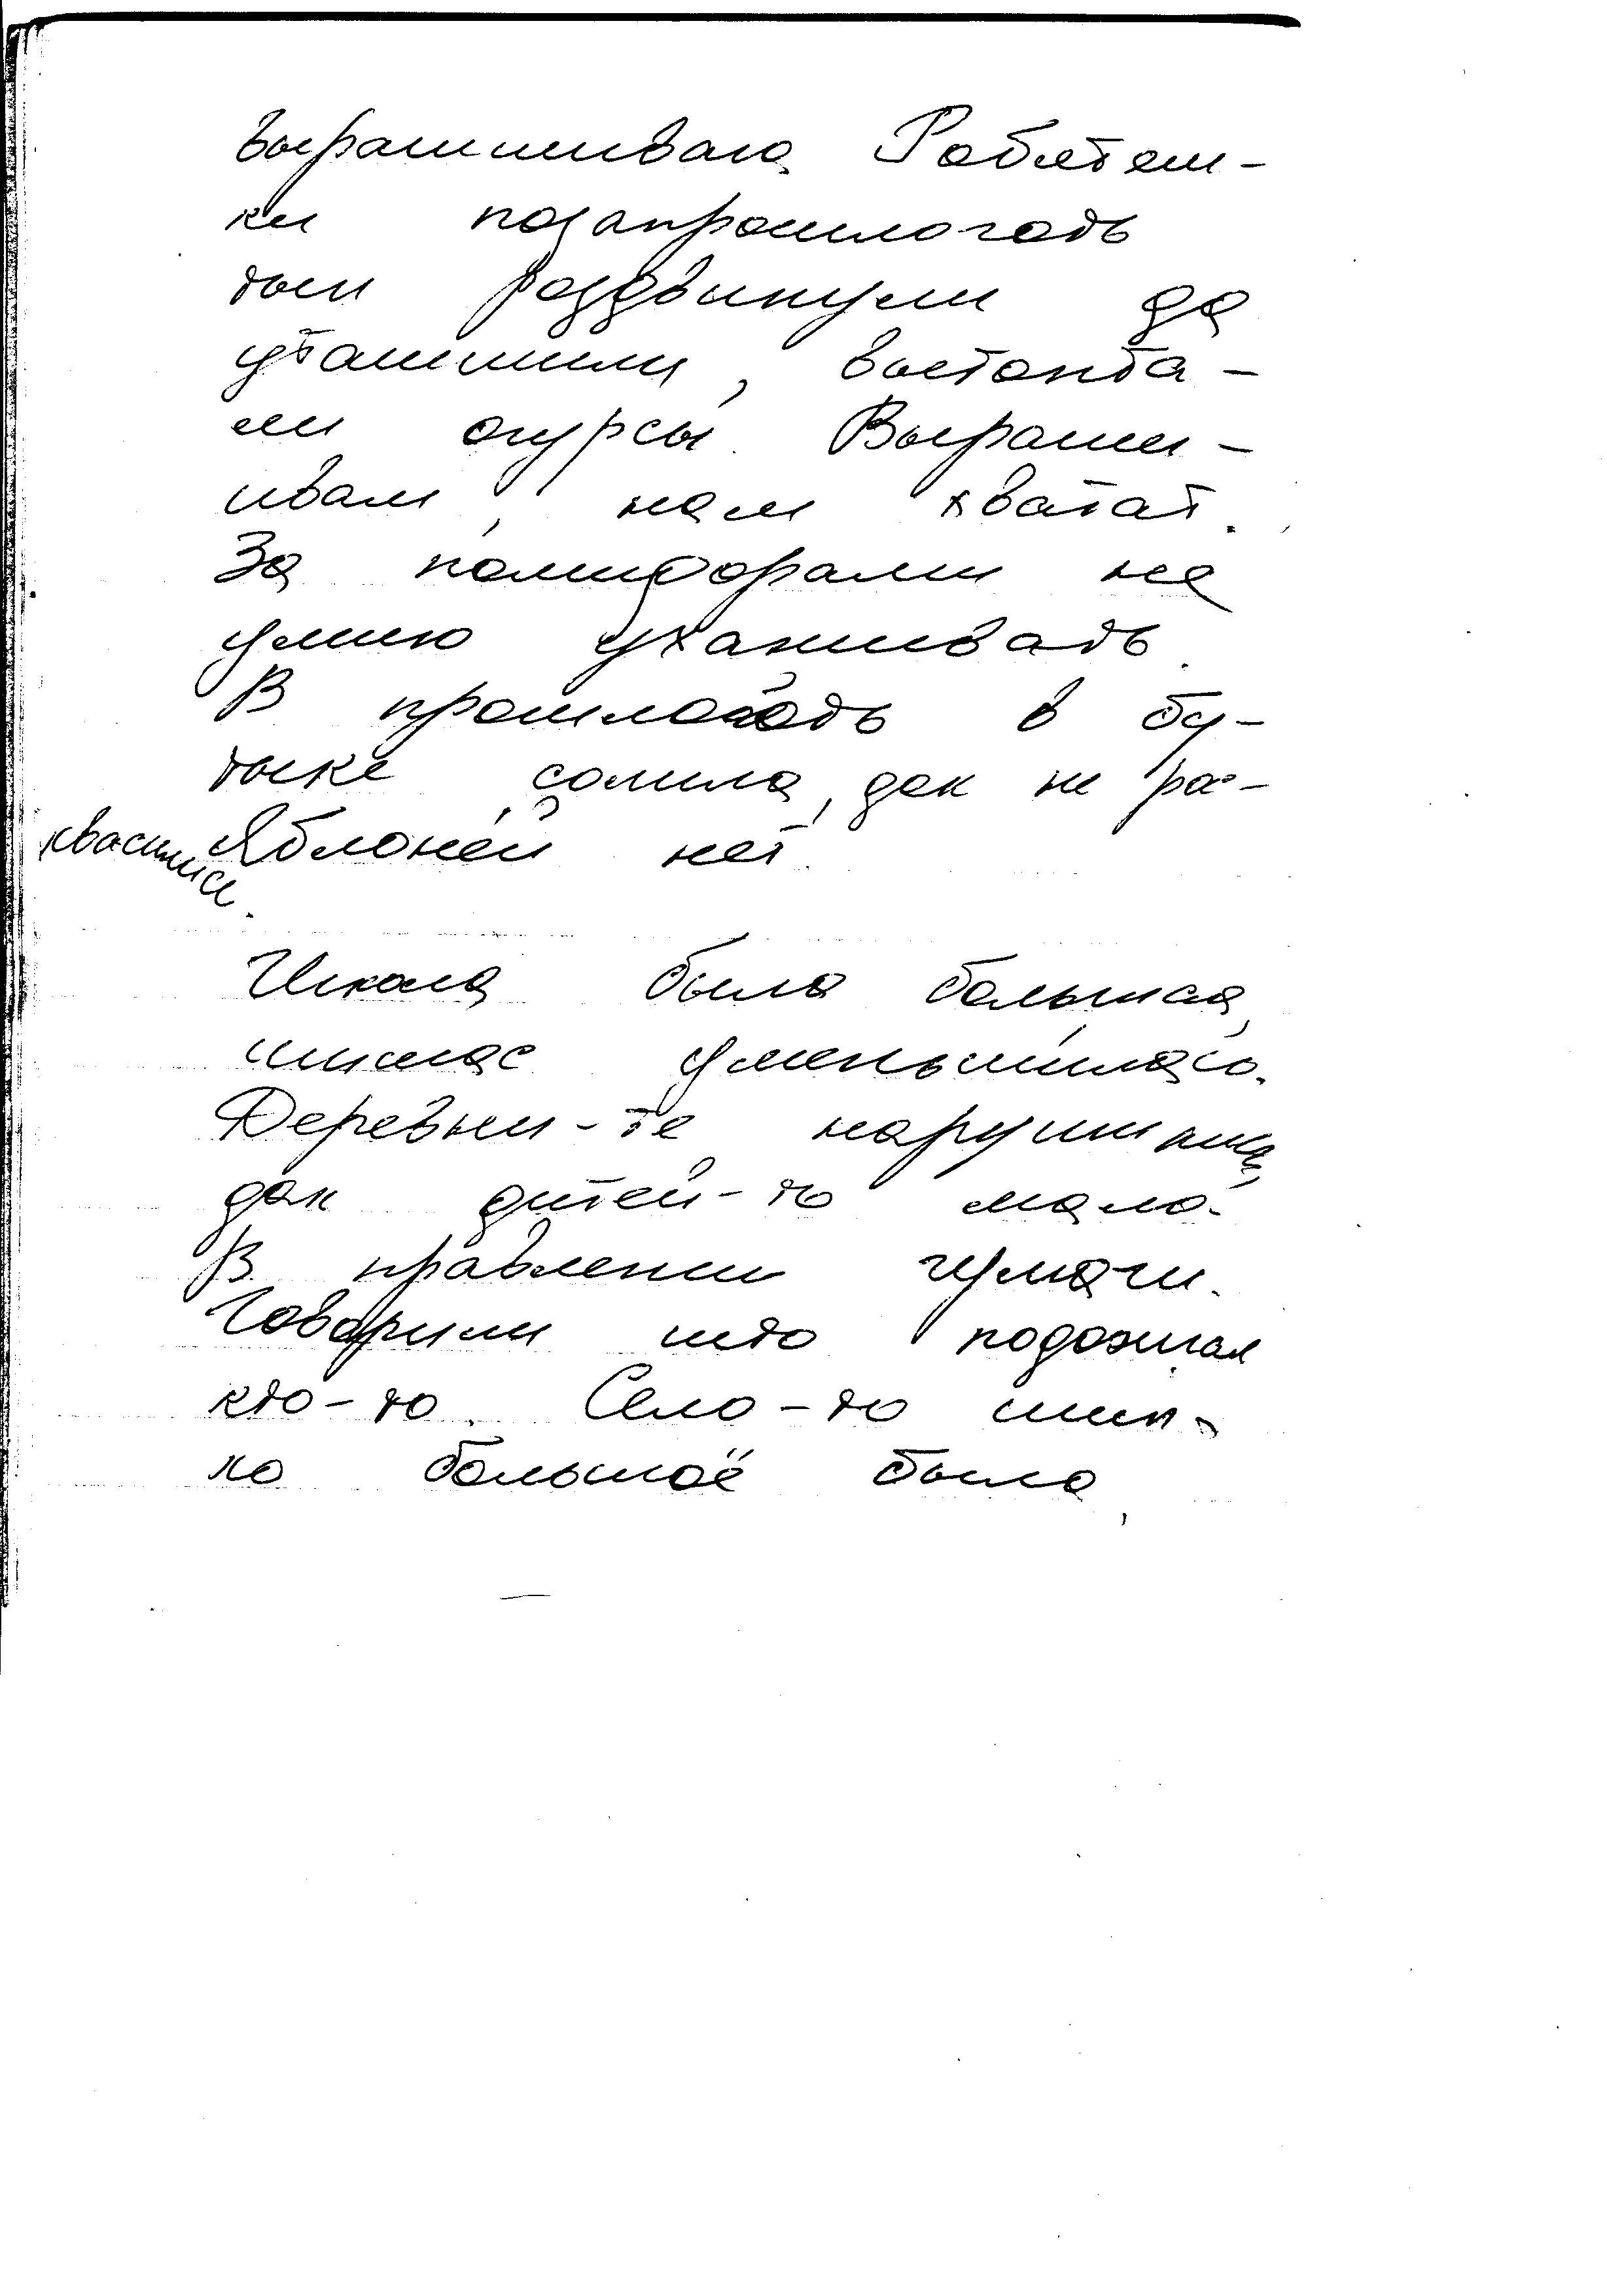 вырашшиваю. Робятёш-
ки позапрошлогодь
тын роздвинули да
уташшили, вытопта-
ли огурсы. Выраши-
ивам, нам хватат.
За помидорами не
умию ухаживать.
В прошлогодь в бу-
тыке солила, дак не ра-
квасились.
Яблоней нет.
Школа была большая,
шишас уменьшилась.
Деревни-те нарушили,
дак дитей-то мало.
В правлении
Говорили што подожгал
кто-то. Село-то шип-
ко большоё было,